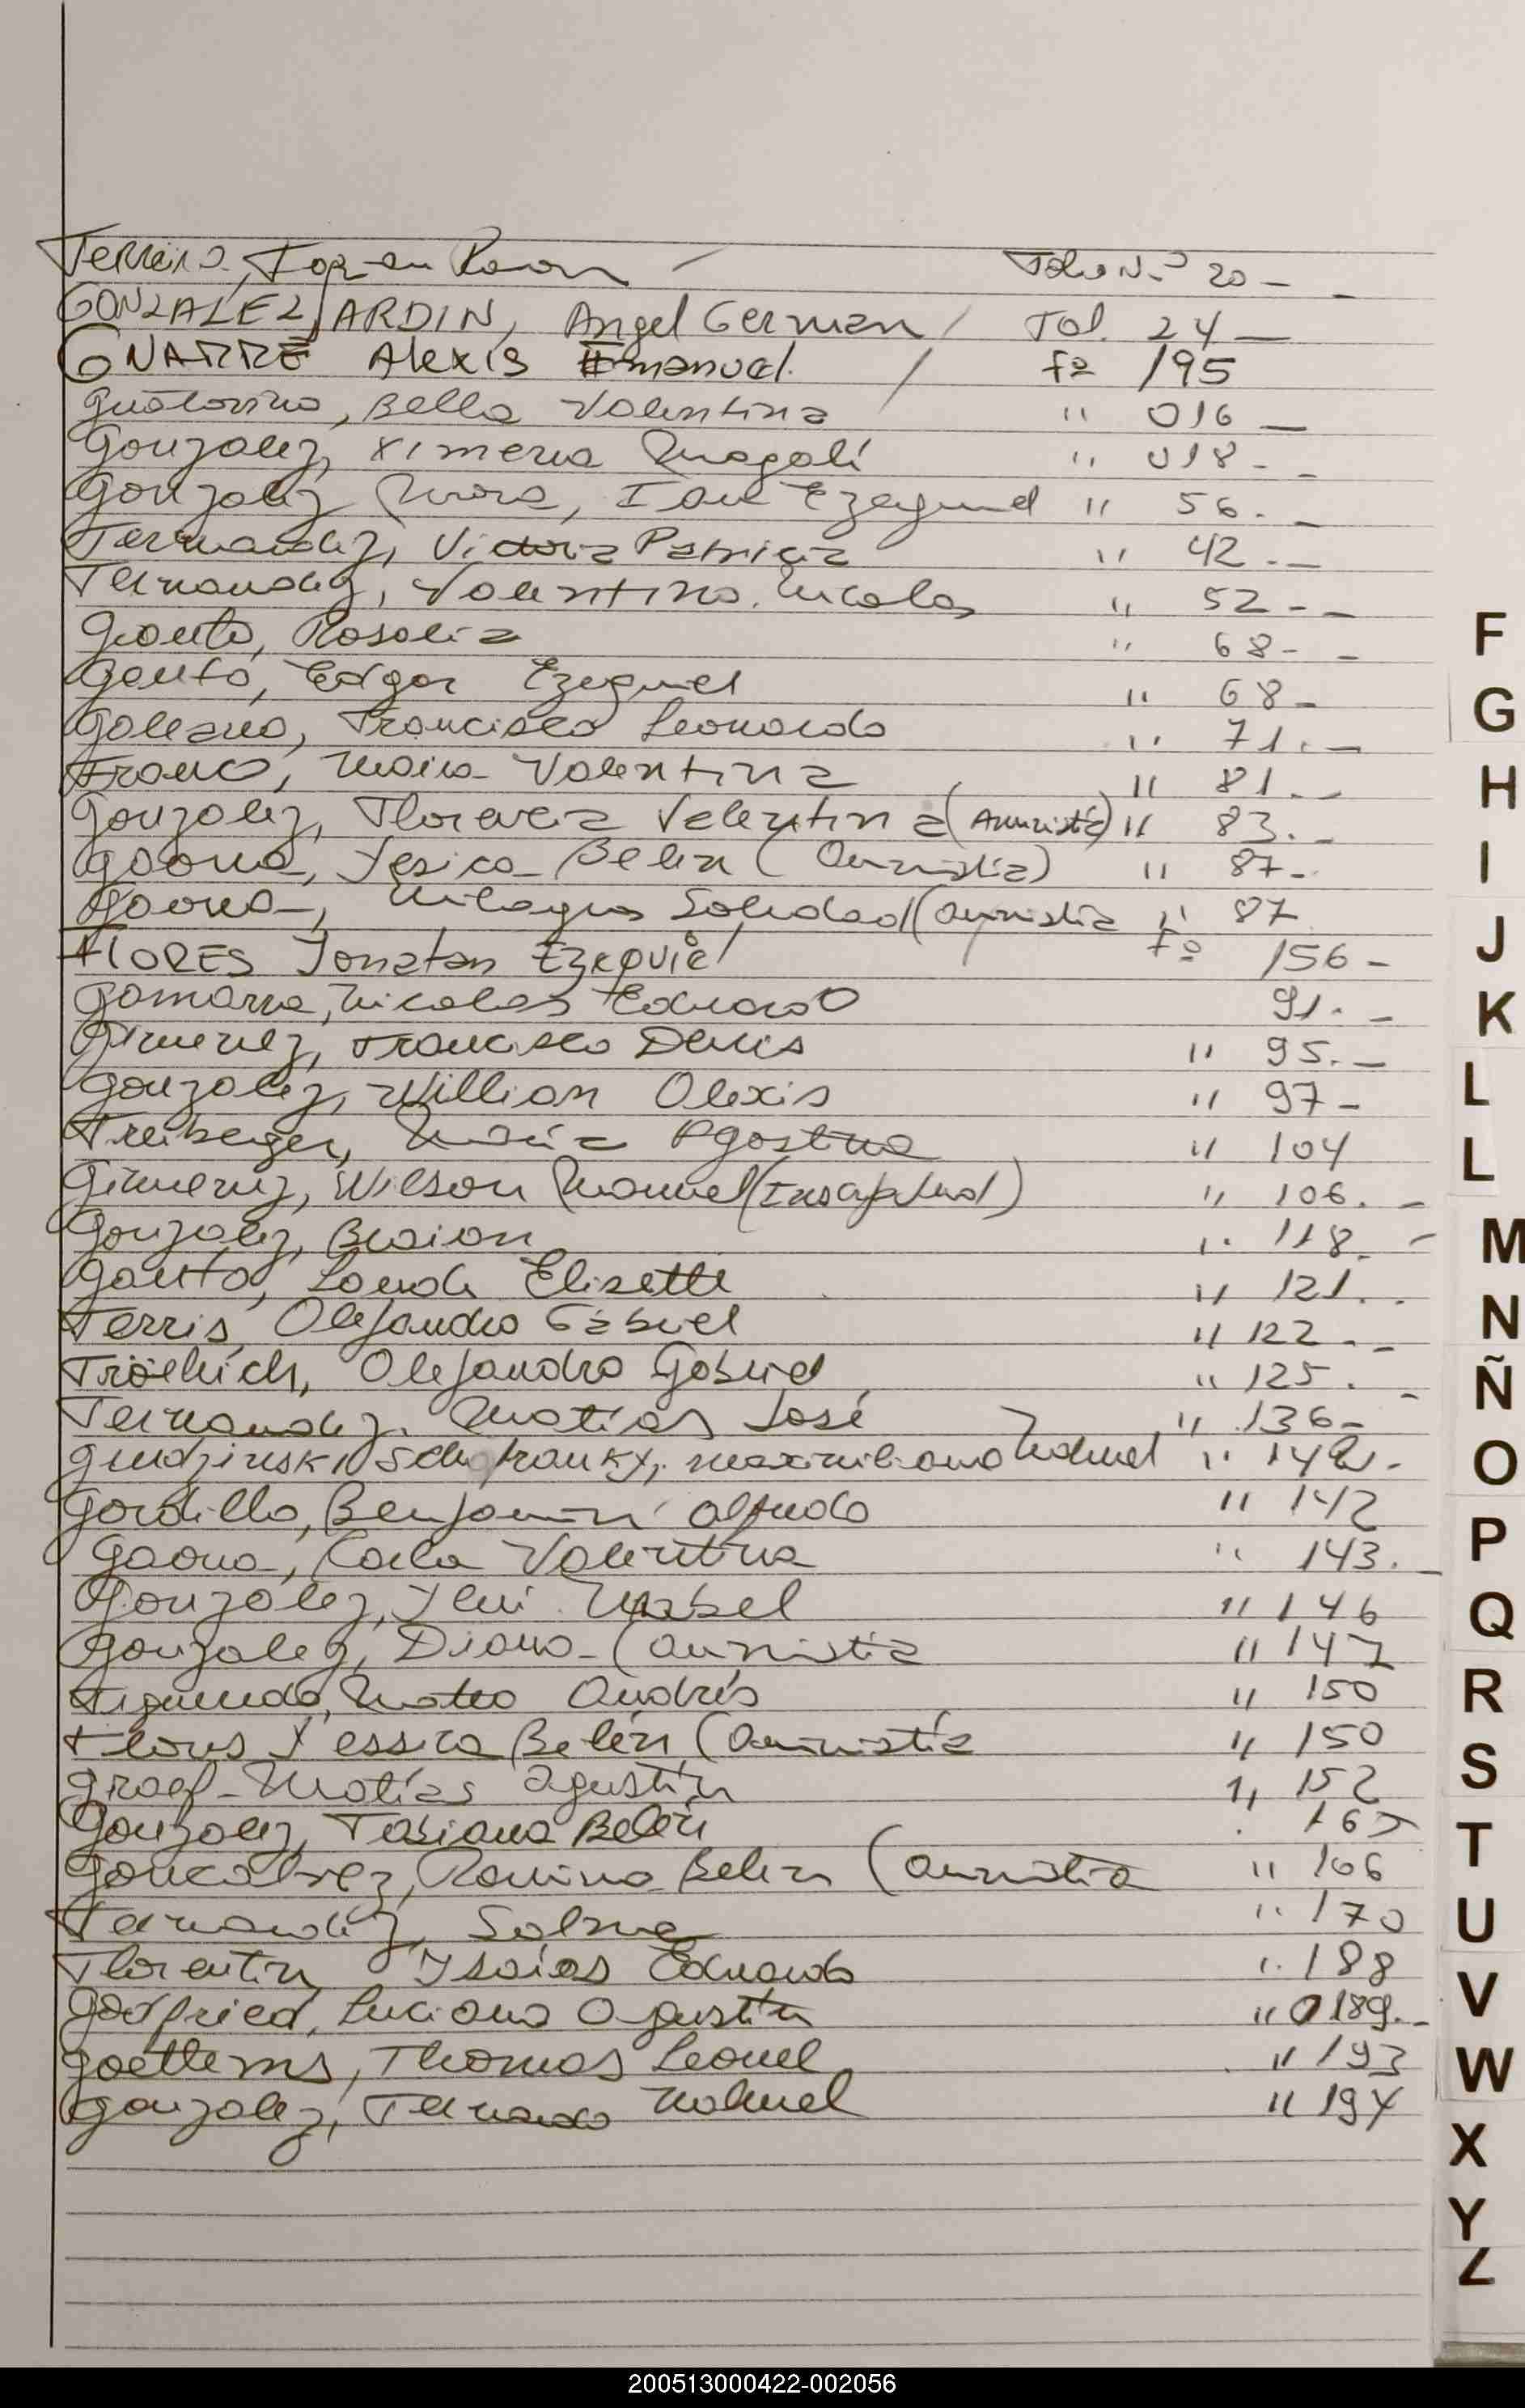 Ferreira, Ramon / Folio N.º 20 -
GONZALEZ JARDIN, Angel German / Fol. 24 -
GNARRE Alexis Emanuel. / fº 195
Guastavino, Bella Valentina / " 016 -
Gonzalez, Ximena Magali " 018 -
Gonzalez Mora, Ian Ezequiel " 56. -
Fernandez, Victoria Patricia " 42 -
Fernandez, Valentino. Nicolas " 52 -
Gauto, Rosalia " 68 -
Gauto, Edgar Ezequiel " 68 -
Galeano, Francisco Leonardo " 71. -
Franco, Maira Valentina " 81. -
Gonzalez, Florencia Valentina (Amnistía) " 83. -
Gaona, Yesica Belen (Amnistía) " 87 -
Gaona, Milagros Soledad (Amnistía " 87
FLORES Jonatan Ezequiel fº 156 -
Gamarra, Nicolas Eduardo 91. -
Gimenez, Francisco Denis " 95. -
Gonzalez, Willian Alexis " 97 -
Freiberger, María Agostina " 104
Gimenez, Wilson Manuel " 106. -
Gonzalez, Braian " 118. -
Gauto, Elisette " 121.
Ferris, Alejandro Gabriel " 122 -
Fröehlich, Alejandro Gabriel " 125. -
Fernandez. Matías José " 136 -
Maximiliano Nahuel "
Gordillo, Benjamin Alfredo " 142
Gaona, Carla Valentina " 143. -
Gonzalez, Mabel " 146
Gonzalez, Diana (Amnistia " 147
Figueredo, Mateo Andrés " 150
Flores Yessica Belén (Amnistía " 150
Graef Matías Agustín " 152
Gonzalez, Tatiana Belén
Goncalvez, Romina Belen (Amnistia " 166
Fernandez, " 170
Florentin Isaias Eduardo " 188
Godfried, Luciano Agustín " 0189. -
Goettems, Thomas Leonel " 193
Gonzalez, Fernando Nahuel " 194
F
G
H
I
J
K
L
L
M
N
Ñ
O
P
Q
R
S
T
U
V
W
X
Y
Z
200513000422-002056